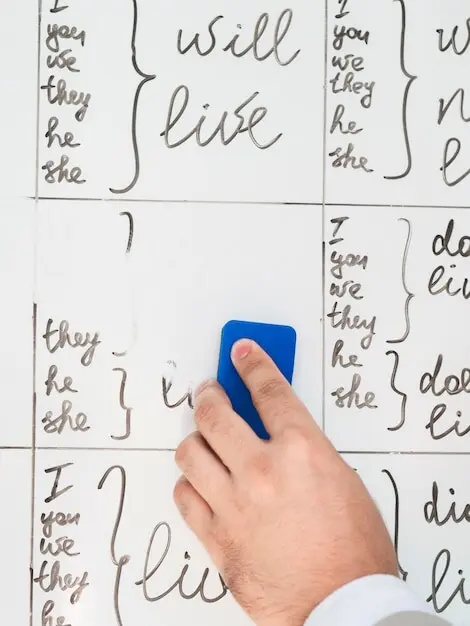 I
you
we
they
he
she
will
live
I
you
we
they
he
she
w
n
l
they
he
she
li
I
you
we
they
he
she
do
liv
do
liv
I
you
we
they
he
liv
di
liv